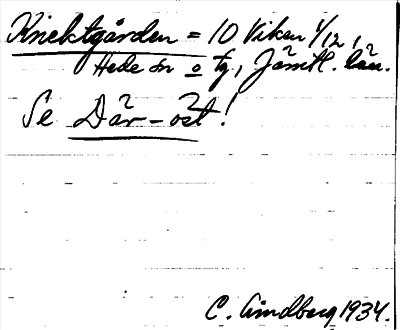 Knektgården = 10 Viken 1/12,
Hede sn o tg, Jämtl. län.
Se Där-öst!
C. Lindberg 1934.